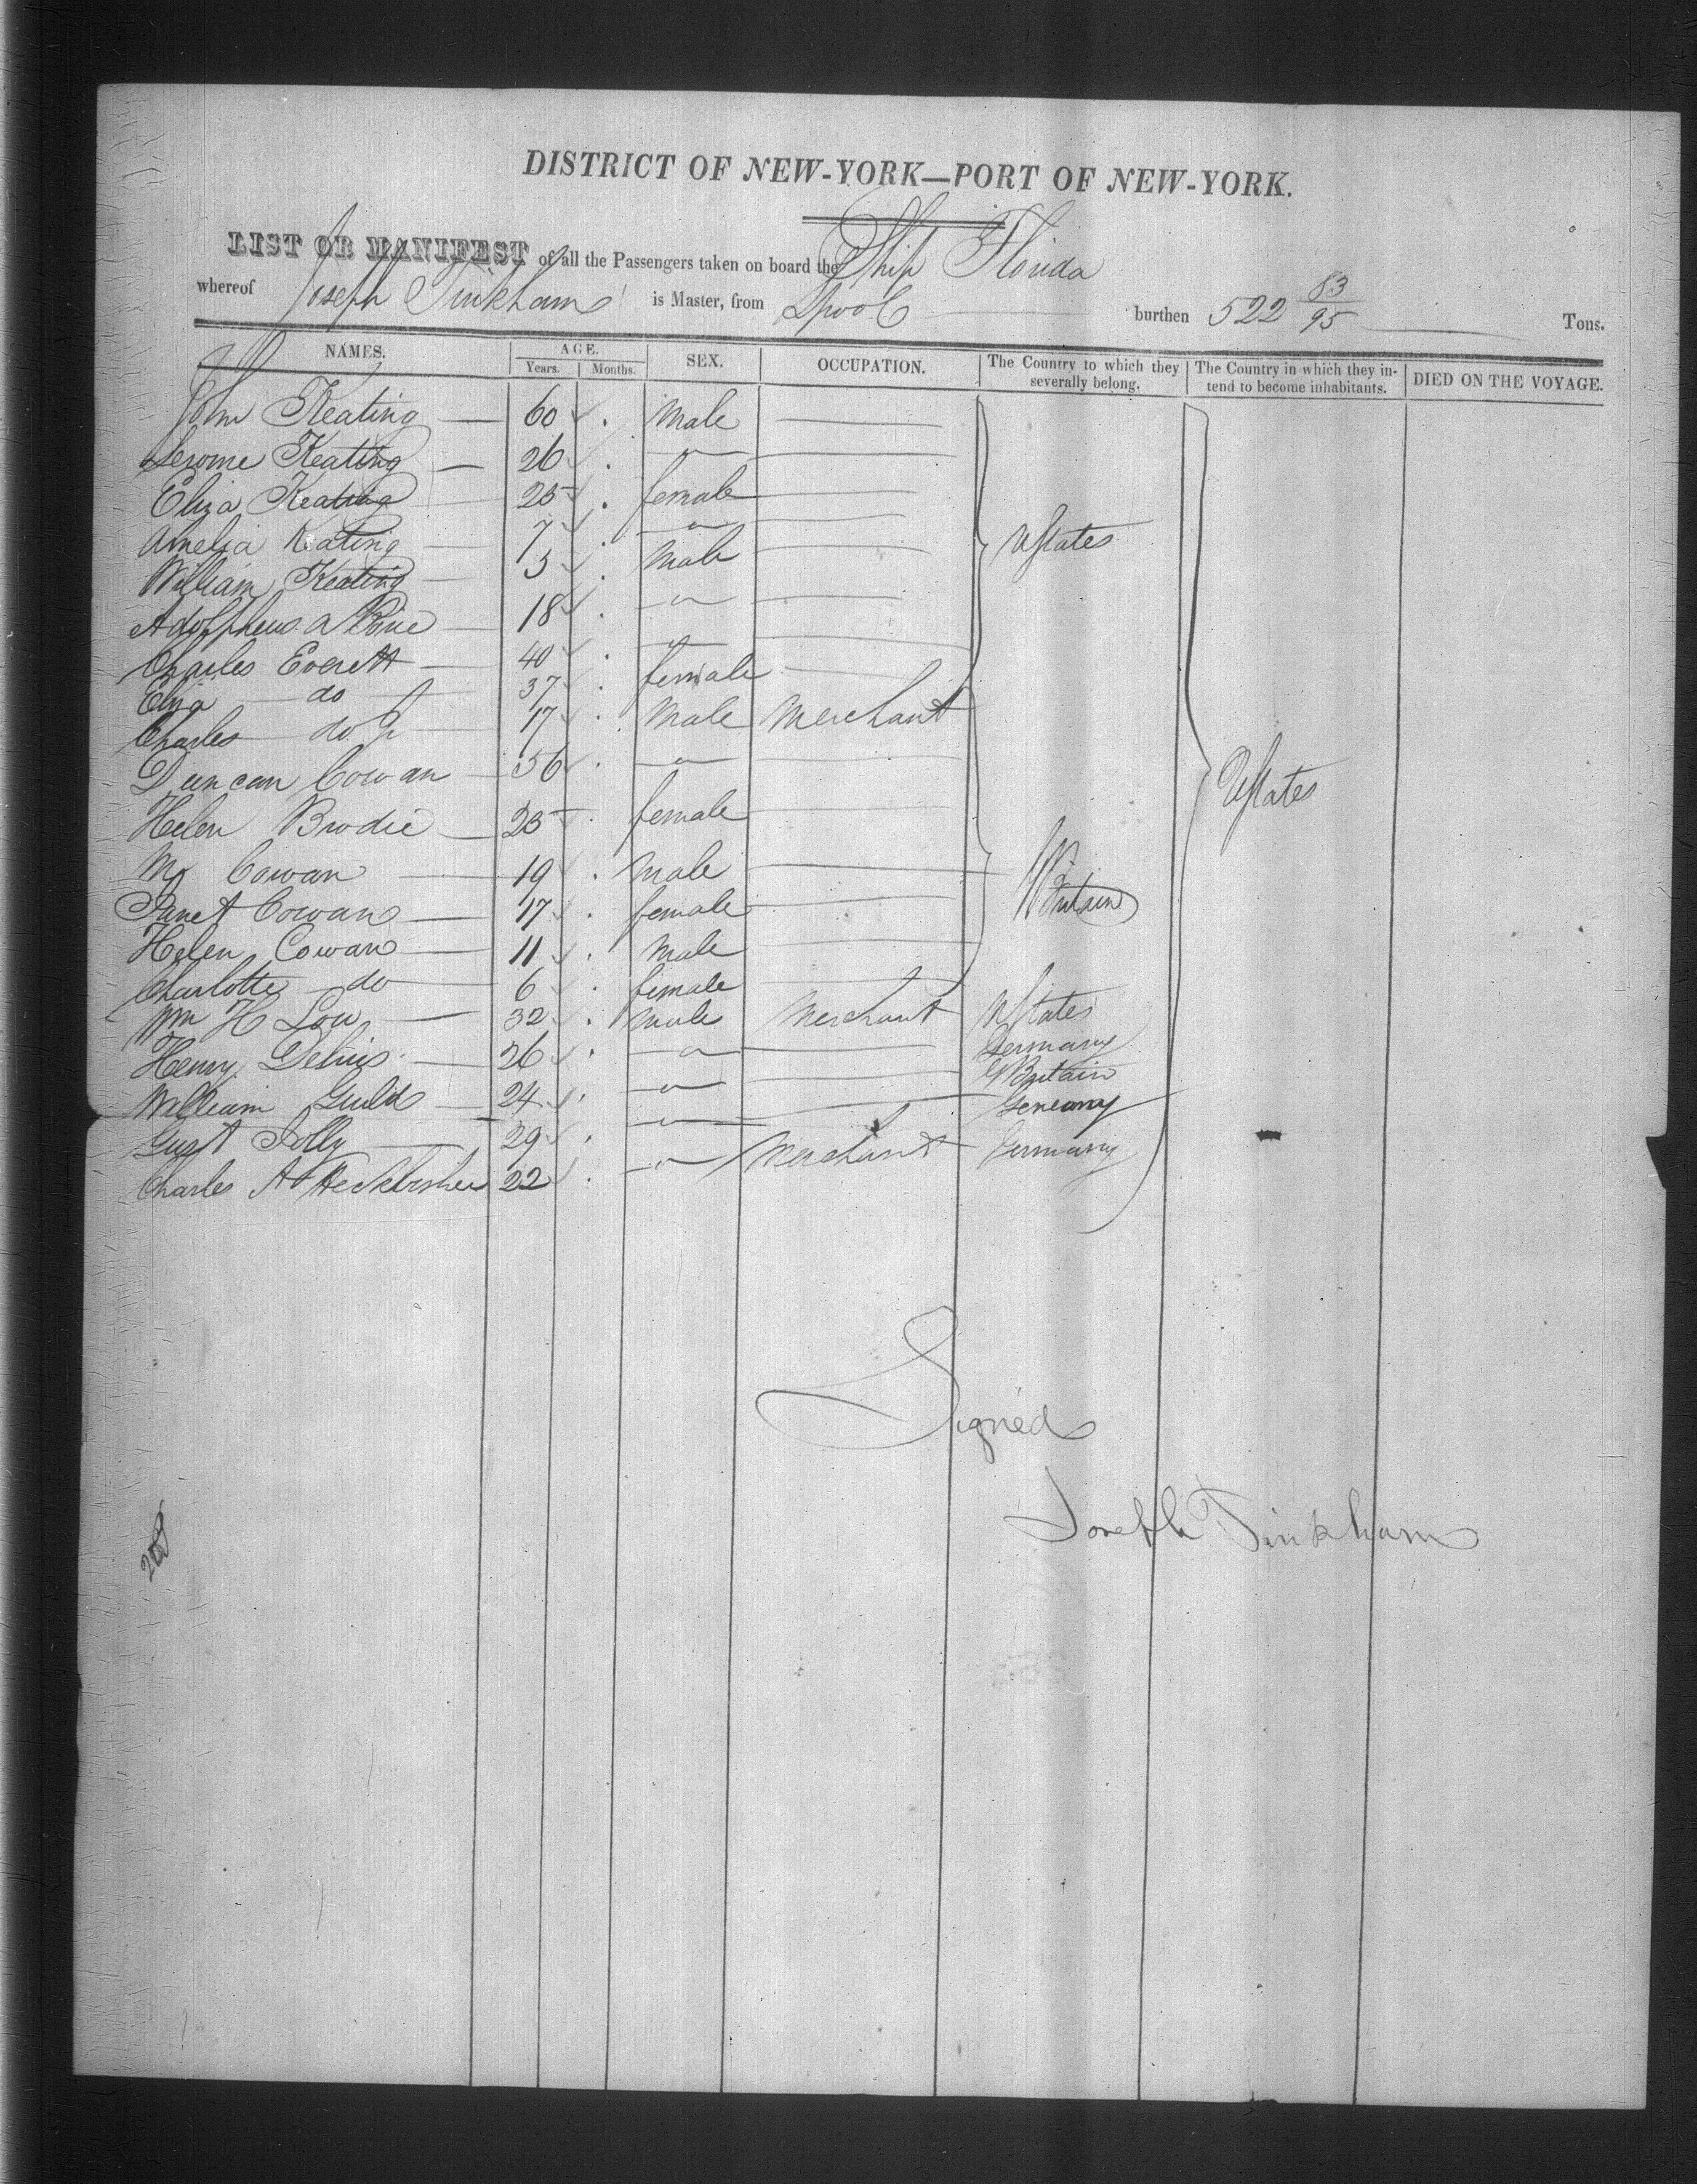 DISTRICT OF NEW-YORK—PORT OF NEW-YORK.
LIST OR MANIFEST of all the Passengers taken on board the Ship Florida
whereof Joseph Tinkham is Master, from Lpool burthen 522 83/95 Tons.
NAMES. AGE. Years. Months. SEX. OCCUPATION. The Country to which they severally belong. The Country in which they intend to become inhabitants. DIED ON THE VOYAGE.
John Keating 60 Male
Jerome Keating 26 "
Eliza Keating 25 female
Amelia Keating 7 "
William Keating 5 Male UStates
Adolpheus a 18 "
Charles Everett 40 "
Eliza do 37 female
Charles do Jr 17 Male Merchant
Duncan Cowan 56 " UStates
Helen Brodie 25 female
Cowan 19 Male
Janet Cowan 17 female GBritain
Helen Cowan 11 Male
Charlotte do 6 female
Wm H Low 32 male Merchant UStates
Henry Delius 26 " Germany
William Guild 24 " GBritain
Gust Jolly 29 " Germany
Charles A 22 " Merchant Germany
Signed
Joseph Tinkham